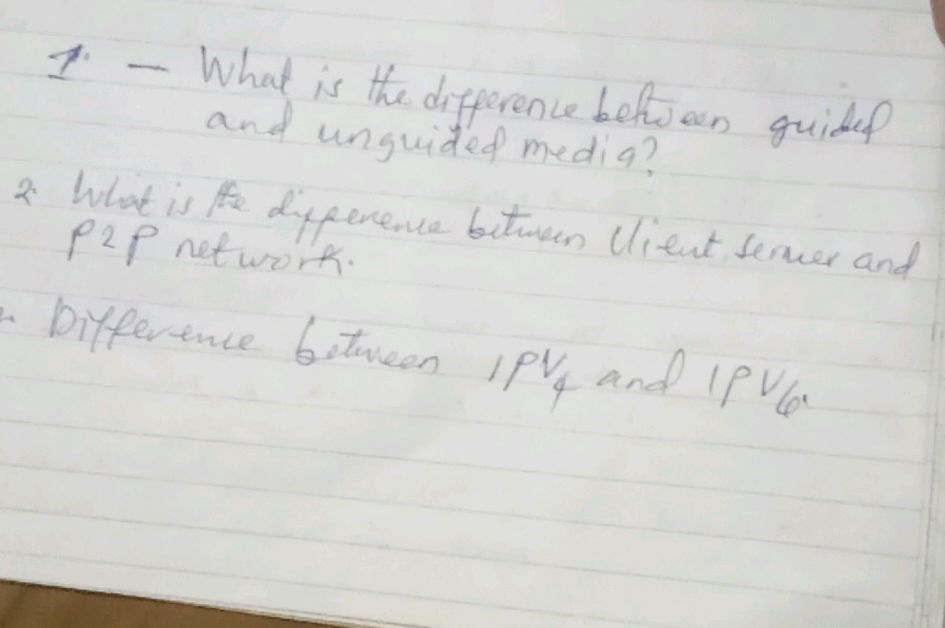 1. - What is the difference between guided
and unguided media?
2. What is the difference between Client server and
P2P network.
Difference between IPV4 and IPV6.